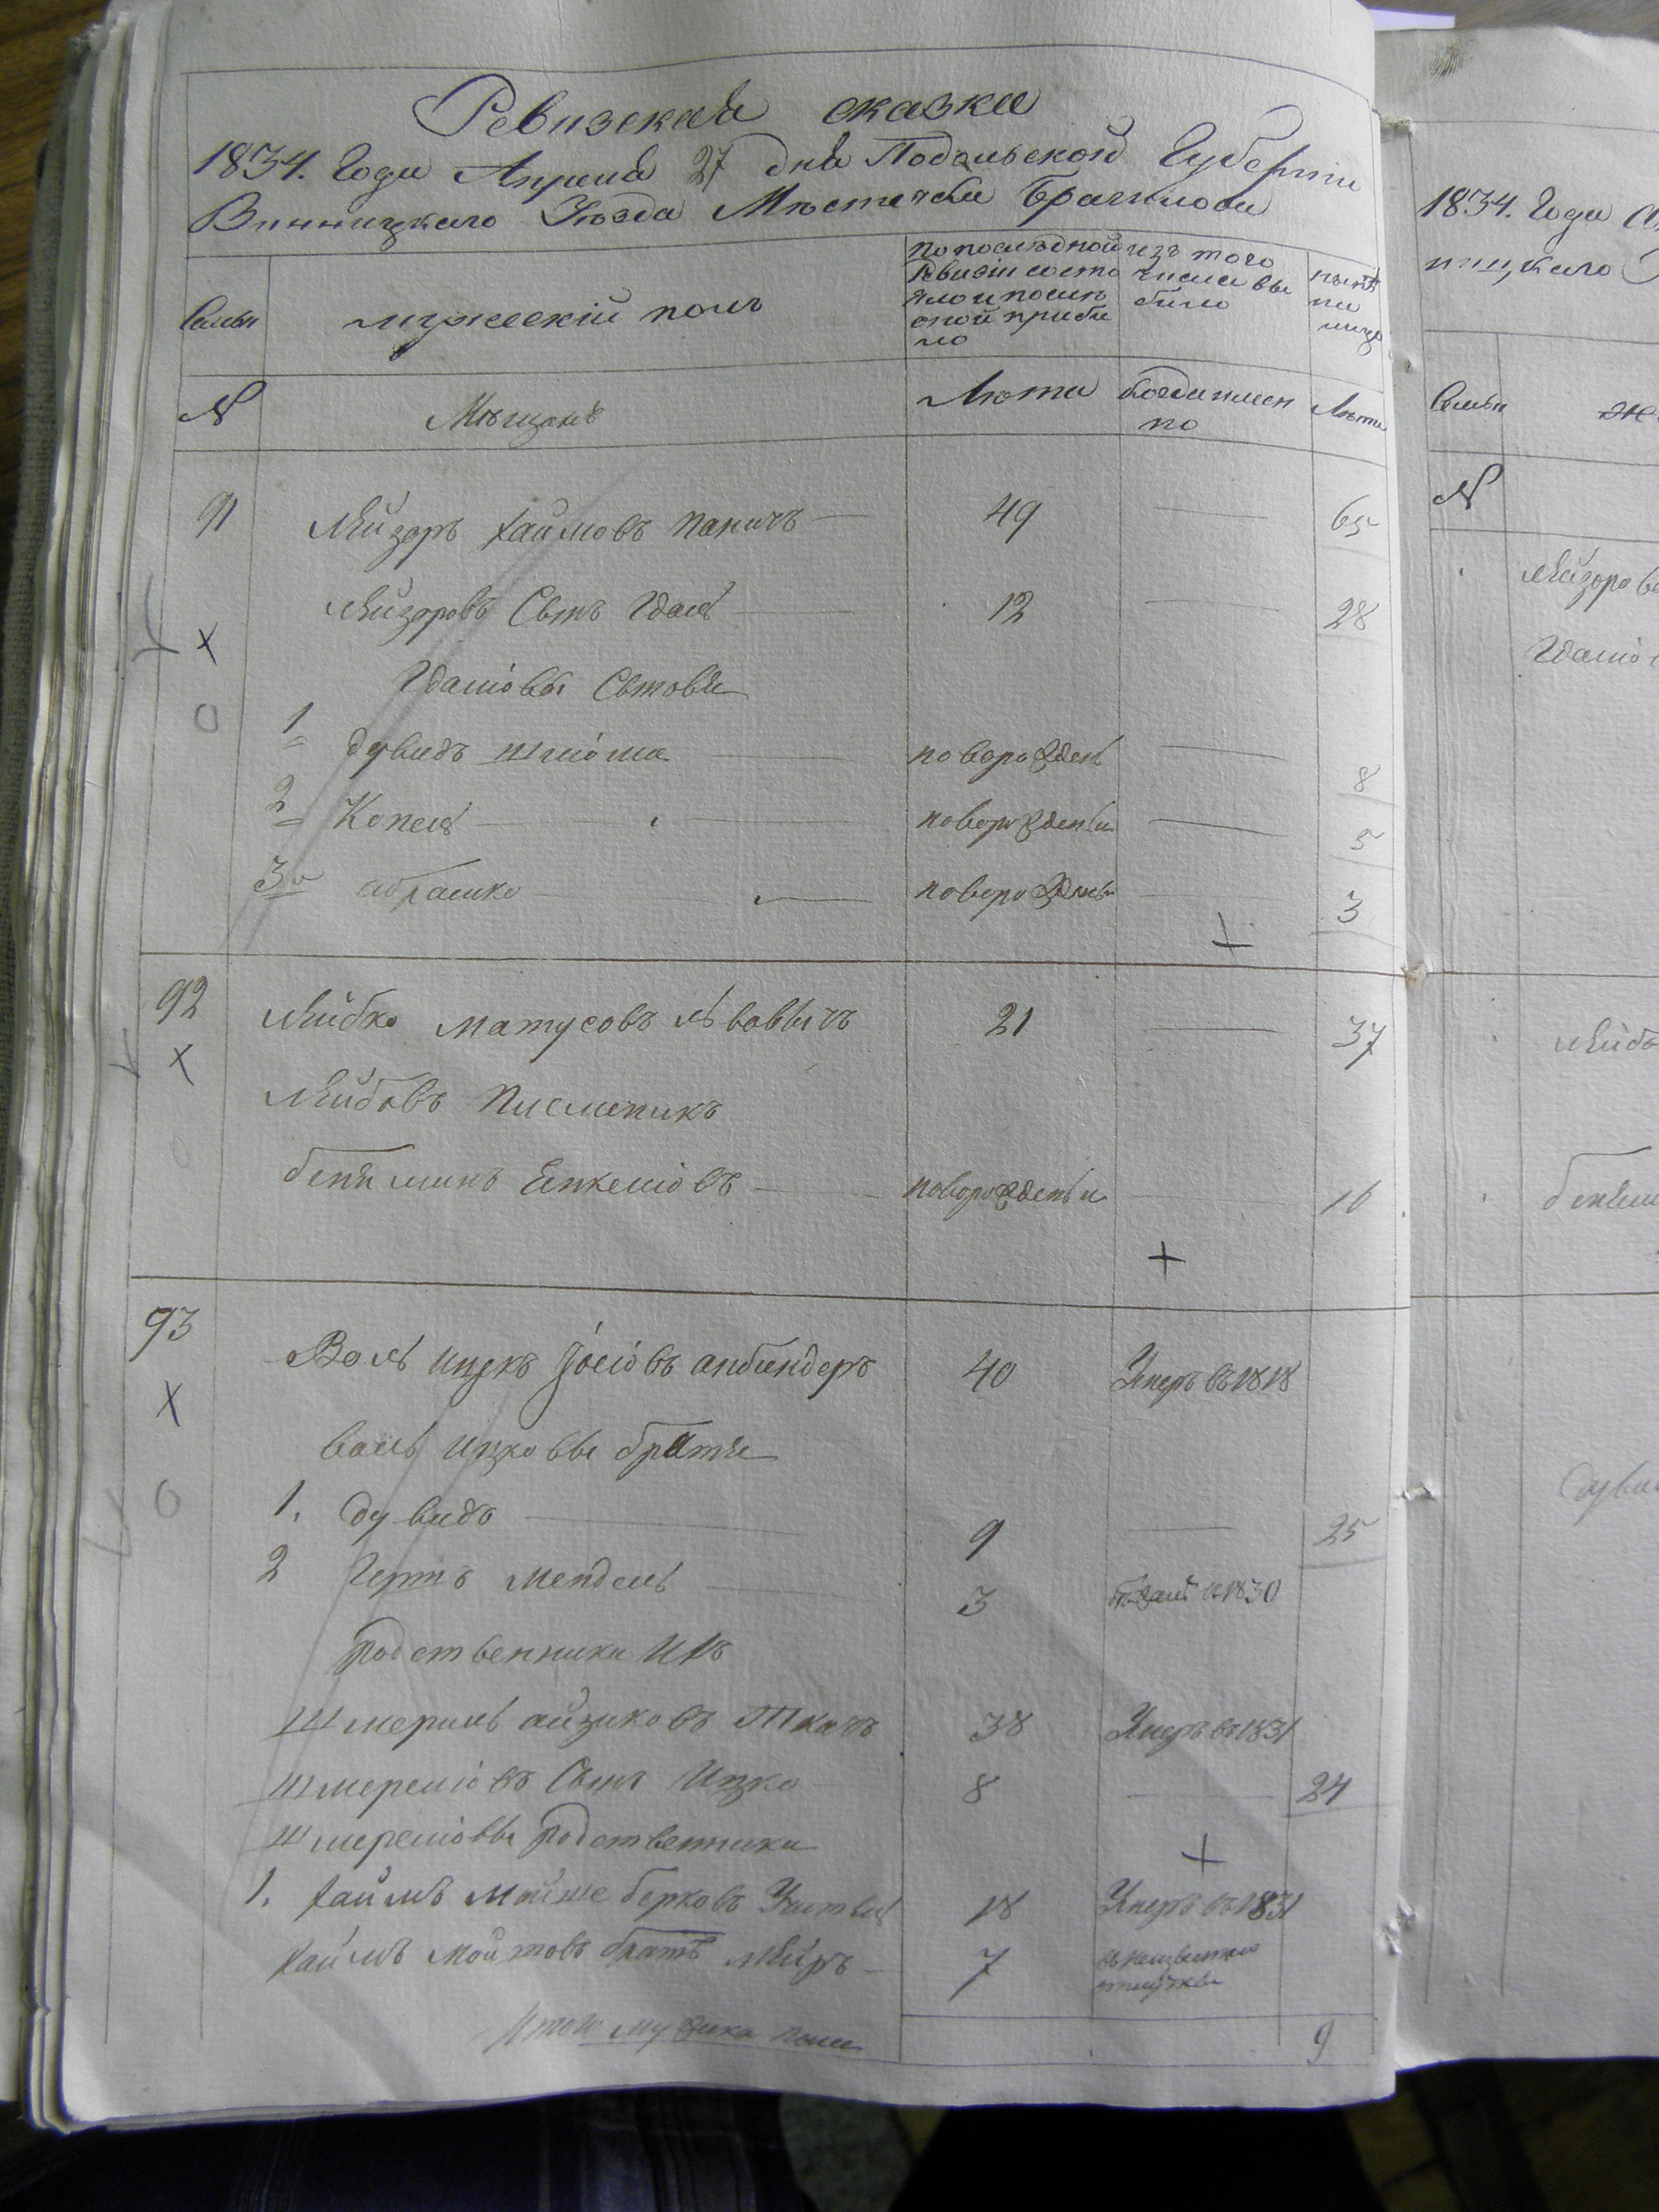 Ревизская сказка
1834. Года Апреля 27 дня Подольской Губерніи
Винницкаго Уѣзда Мѣстечка Браилова
Семьи
мужескій полъ
по послѣдной
ревизіи состо
яло и послѣ
оной прибы
ло
изъ того
числа вы
было
нынѣ
на
лицо
№
Мѣщанъ
Лѣта
Когда имен
но
Лѣта
91 Лейзоръ Хаимовъ Паничъ 49 65
Лейзоровъ Сынъ Гдаля 12 28
Гдаліовы Сыновя
1 Дувидъ Шліома новорожден 8
2 Копель новорожденъи 5
3 абрамко новорожденъ 3
+
92 Лейбко Матусовъ Львовычъ 21 37
Лейбовъ Писменикъ
бенямин Енкеліовъ новорожденъи 16
+
93 Воль ицекъ Іосіовъ анбиндеръ 40 Умеръ въ 1818
воль ицковы братя
1. Дувидъ 9 25
2 Гершъ Мендель 3 1830
родственники Ихъ
Шмериль айзиковъ Ткачъ 38 Умеръ въ 1831
Шмереліовъ Сынъ Ицко 8 24
Шмереліовы родственники
+
1. Хаимъ Мойше берковъ 18 Умеръ въ 1831
Хаимъ Мойшовъ братъ Мейръ 7 въ неизвестно
отлучки
Итого мужска пола 9
1834. Года
ницкаго
Семьи
№
Лейзоров
Гдаліо
Лейбо
беням
Дуви